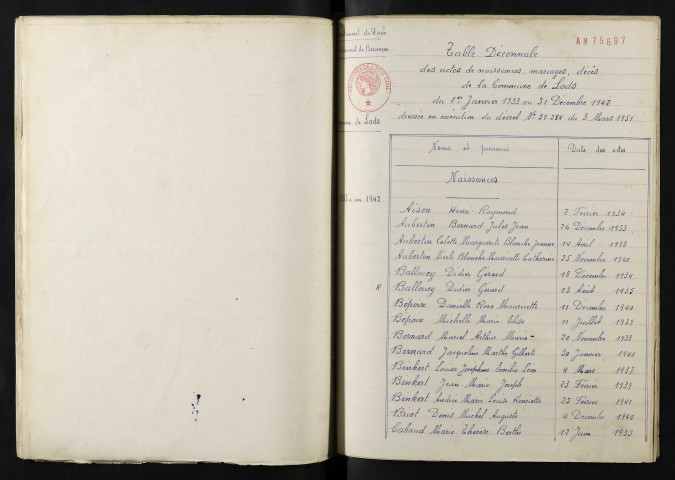 AM 75697
Table Décennale
des actes de naissances, mariages, décès
de la Commune de Lods
du 1er Janvier 1933 au 31 Décembre 1942
dressée en exécution du décret N° 51.284 du 3 Mars 1951
de Besançon
de Lods
1942
Noms et prénoms Date des actes
Naissances
Henri Raymond 2 Février 1934
Auberton Bernard Jules Jean 26 Décembre 1933
Auberton Colette Marguerite Blanche Jeanne 14 Avril 1938
Auberton Nicole Blanche Mauricette Catherine 25 Novembre 1940
Balloucy Didier Gérard 18 Décembre 1934
Balloucy Didier Gérard 13 Août 1935
Bépoix Danielle Rose Mauricette 11 Décembre 1940
Bépoix Michelle Marie Elise 11 Juillet 1939
Bernard Marcel Arthur Marie 20 Novembre 1933
Bernard Jacqueline Marthe Gilberte 30 Janvier 1940
Binkert Louise Joséphine Emilie 4 Mars 1937
Binkert Jean Marie Joseph 23 Février 1939
Binkert Andrée Marie Louise Henriette 25 Février 1941
Briot Denis Michel Auguste 4 Décembre 1940
Cabaud Marie Thérèse Berthe 12 Juin 1933